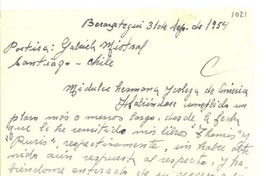 1021
Berazategui 31 de Sep. de 1954
Poetisa: Gabriela Mistral
Santiago - Chile
Mi dulce hermana y colega de América
Habiéndose cumplido un
plazo más o menos largo, desde la fecha
que le he remitido mis libros
respectivamente, sin haber obte
nido aún respuesta al respecto, y ha
biéndome enterado de su regreso